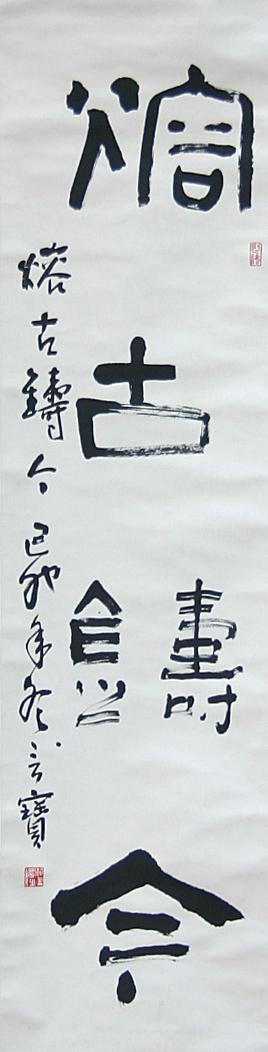 熔古鑄今
熔古鑄今己卯年冬言寶